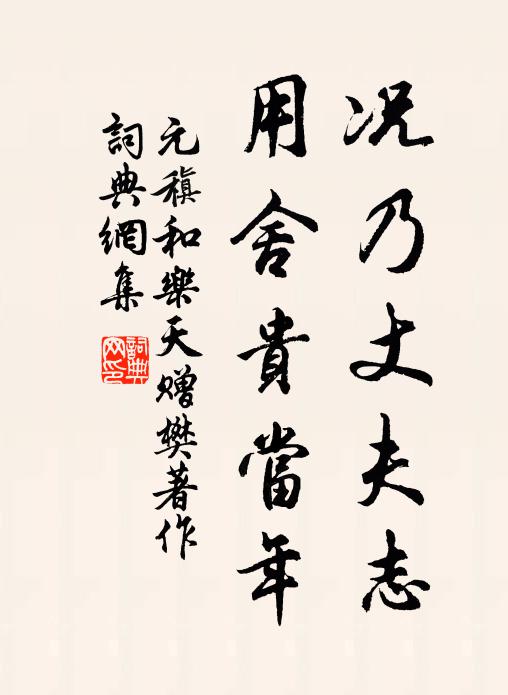 况乃丈夫志
用舍貴當年
元稹和樂天贈樊著作
詞典網集
詞典
网印